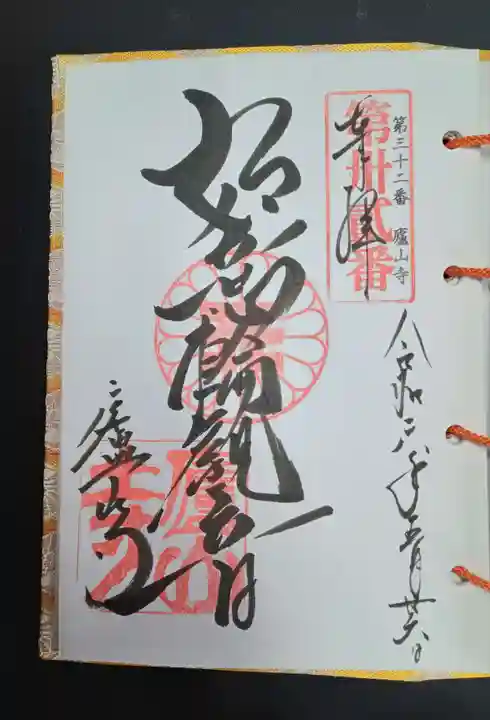 令和六年五月廿六日
第三十二番 廬山寺
第卅貳番
奉拝
如意輪観音
廬山寺
廬山寺